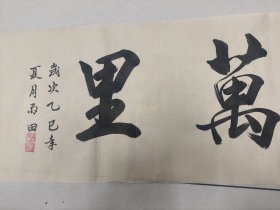 萬里
歲次乙巳年
夏月雨田